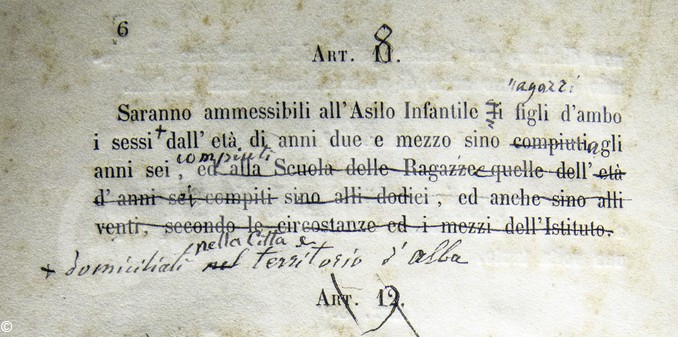 6
ART. 11. 8
ragazzi
Saranno ammessibili all'Asilo Infantile li figli d'ambo
i sessi + dall'età di anni due e mezzo sino compiuti agli
compiuti
anni sei, ed alla Scuola delle Ragazze quelle dell'età
d'anni sei compiti sino alli dodici, ed anche sino alli
venti, secondo le circostanze ed i mezzi dell'Istituto.
nella Città e
+ domiciliati nel territorio d'alba
ART. 12.
©